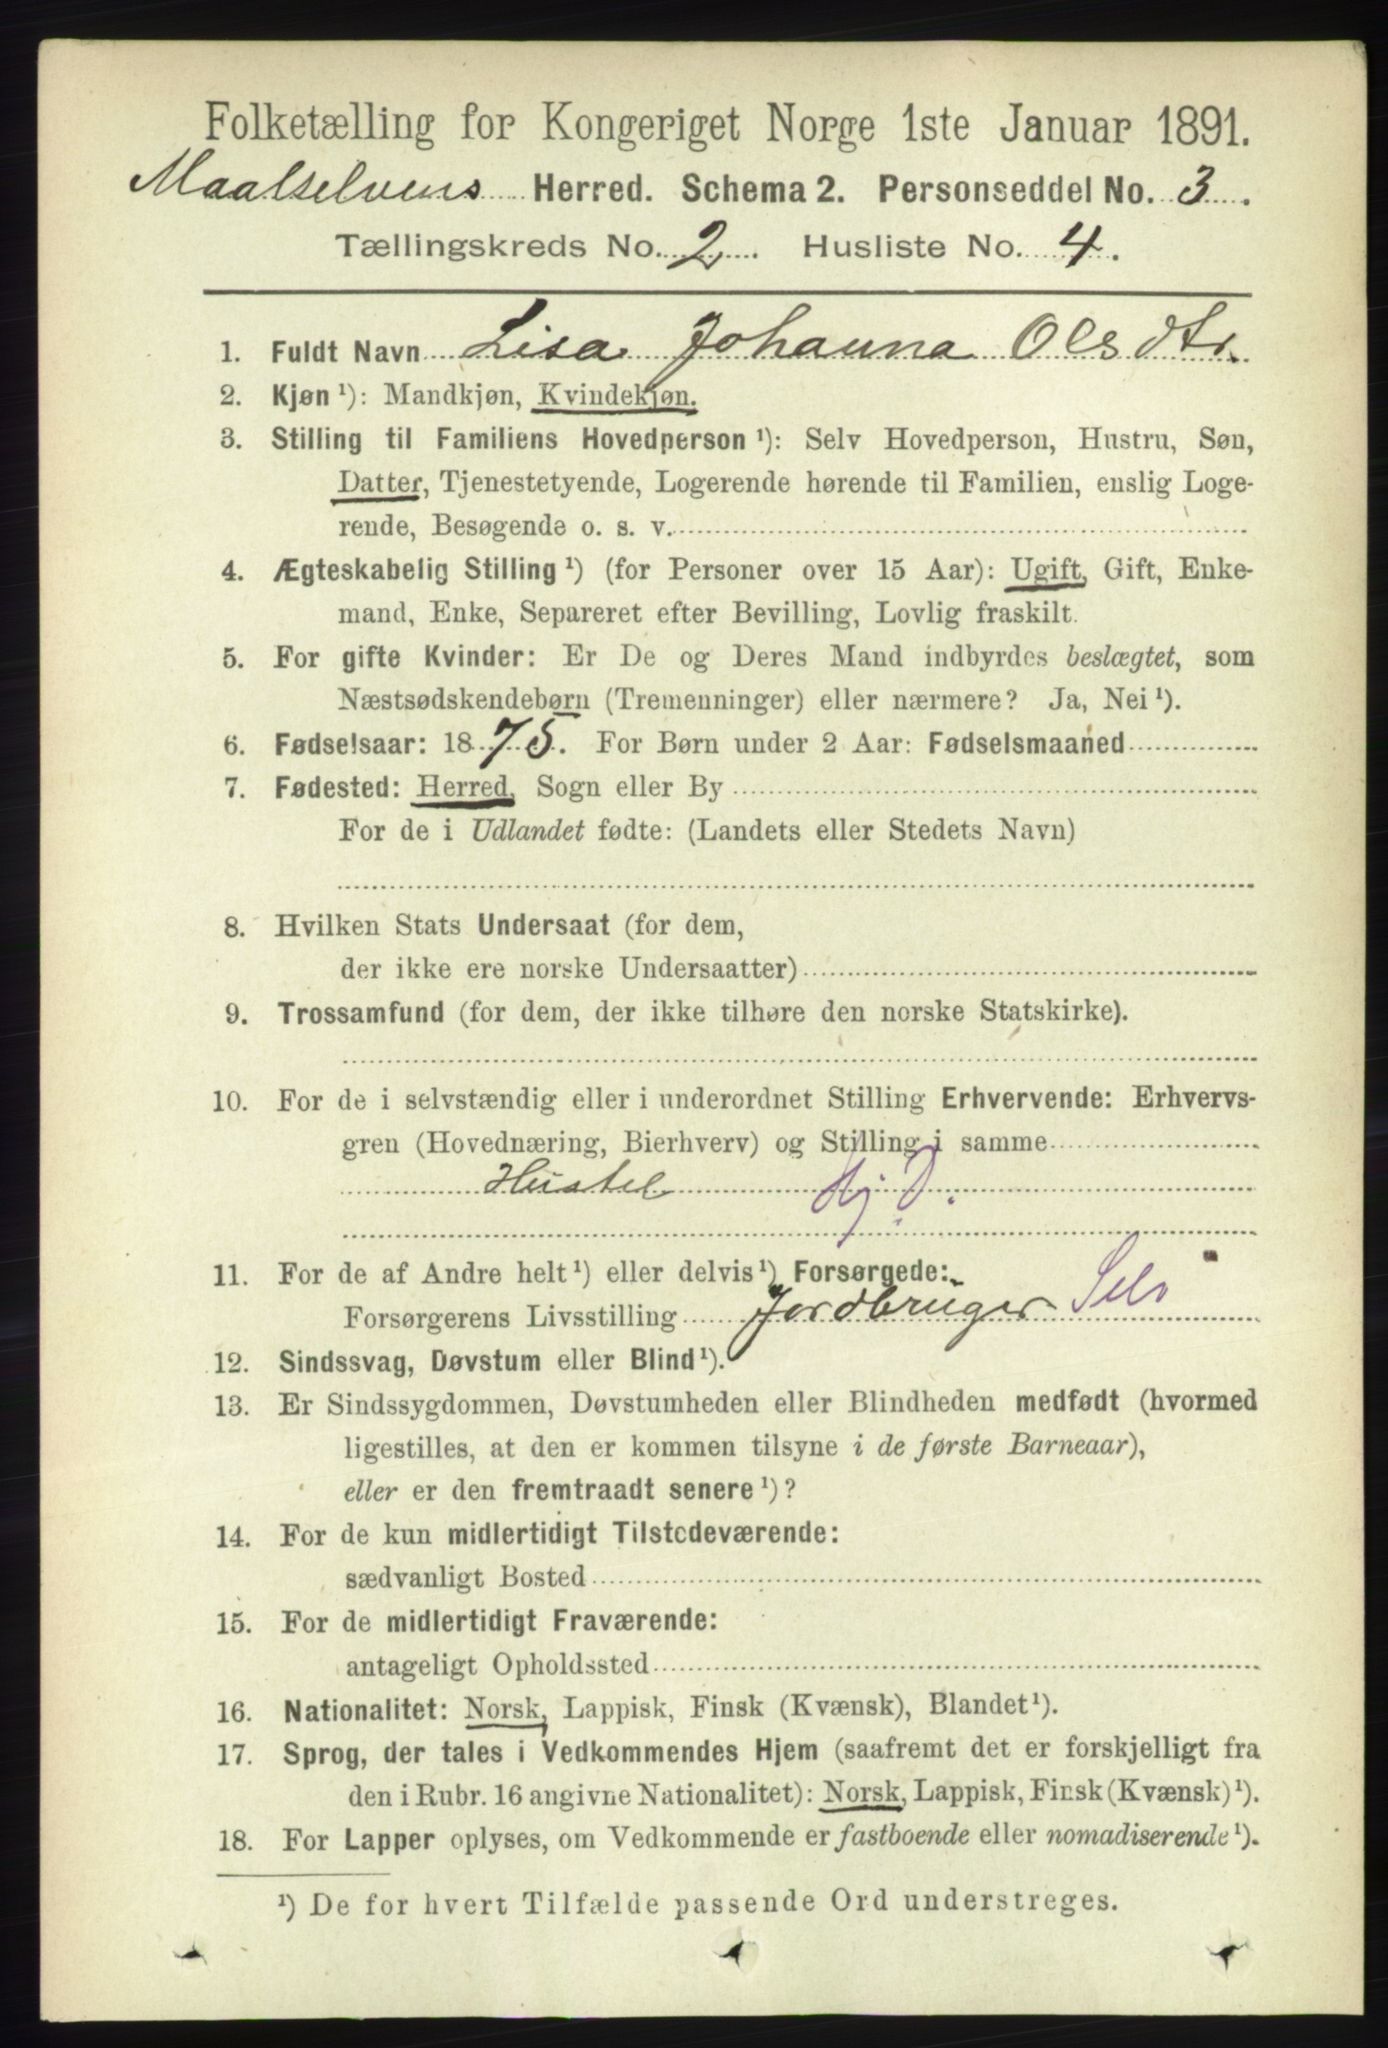 Folketælling for Kongeriget Norge 1ste Januar 1891.
Maalselvens Herred. Schema 2. Personseddel No. 3.
Tællingskreds No. 2. Husliste No. 4.
1. Fuldt Navn Lisa Johanna Olsdtr.
2. Kjøn ¹): Mandkjøn, Kvindekjøn.
3. Stilling til Familiens Hovedperson ¹): Selv Hovedperson, Hustru, Søn,
Datter, Tjenestetyende, Logerende hørende til Familien, enslig Loge-
rende, Besøgende o. s. v.
4. Ægteskabelig Stilling ¹) (for Personer over 15 Aar): Ugift, Gift, Enke-
mand, Enke, Separeret efter Bevilling, Lovlig fraskilt.
5. For gifte Kvinder: Er De og Deres Mand indbyrdes beslægtet, som
Næstsødskendebørn (Tremenninger) eller nærmere? Ja, Nei ¹).
6. Fødselsaar: 1875. For Børn under 2 Aar: Fødselsmaaned
7. Fødested: Herred, Sogn eller By
For de i Udlandet fødte: (Landets eller Stedets Navn)
8. Hvilken Stats Undersaat (for dem,
der ikke ere norske Undersaatter)
9. Trossamfund (for dem, der ikke tilhøre den norske Statskirke).
10. For de i selvstændig eller i underordnet Stilling Erhvervende: Erhvervs-
gren (Hovednæring, Bierhverv) og Stilling i samme
Hustel Hj. D.
11. For de af Andre helt ¹) eller delvis ¹) Forsørgede:
Forsørgerens Livsstilling Jordbruger Selv
12. Sindssvag, Døvstum eller Blind ¹).
13. Er Sindssygdommen, Døvstumheden eller Blindheden medfødt (hvormed
ligestilles, at den er kommen tilsyne i de første Barneaar),
eller er den fremtraadt senere ¹)?
14. For de kun midlertidigt Tilstedeværende:
sædvanligt Bosted
15. For de midlertidigt Fraværende:
antageligt Opholdssted
16. Nationalitet: Norsk, Lappisk, Finsk (Kvænsk), Blandet ¹).
17. Sprog, der tales i Vedkommendes Hjem (saafremt det er forskjelligt fra
den i Rubr. 16 angivne Nationalitet): Norsk, Lappisk, Finsk (Kvænsk) ¹).
18. For Lapper oplyses, om Vedkommende er fastboende eller nomadiserende ¹).
¹) De for hvert Tilfælde passende Ord understreges.